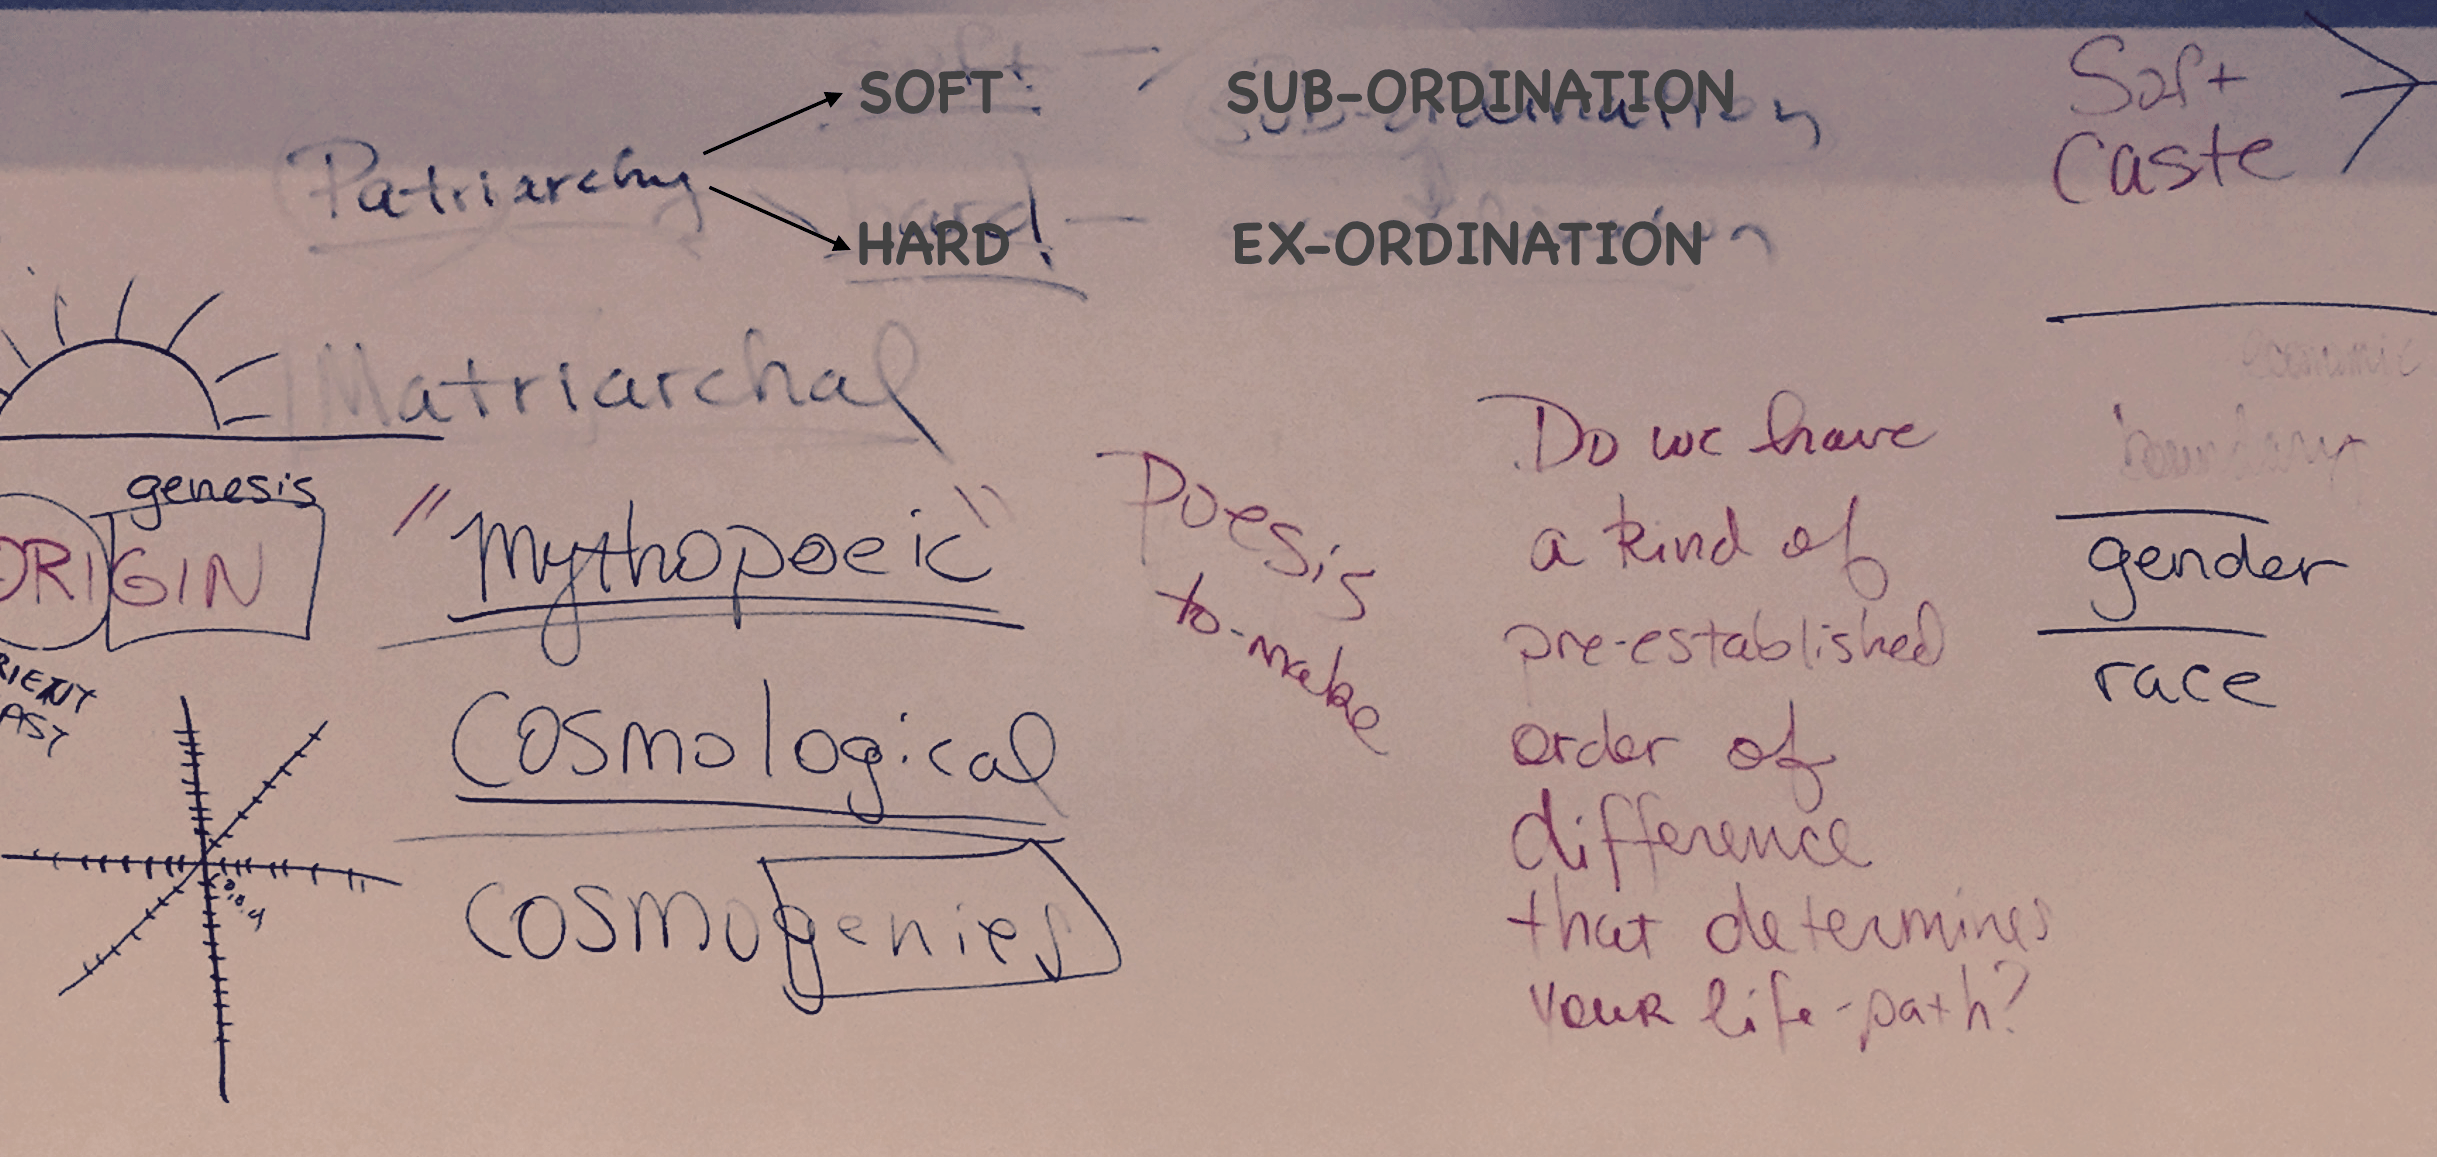 SOFT SUB-ORDINATION
Patriarchy
HARD EX-ORDINATION
Soft
Caste
Matriarchal
genesis
ORIGIN
"mythopoeic"
Cosmological
cosmogenies
Poesis
to-make
Do we have
a kind of
pre-established
order of
difference
that determines
your life-path?
economic
boundary
gender
race